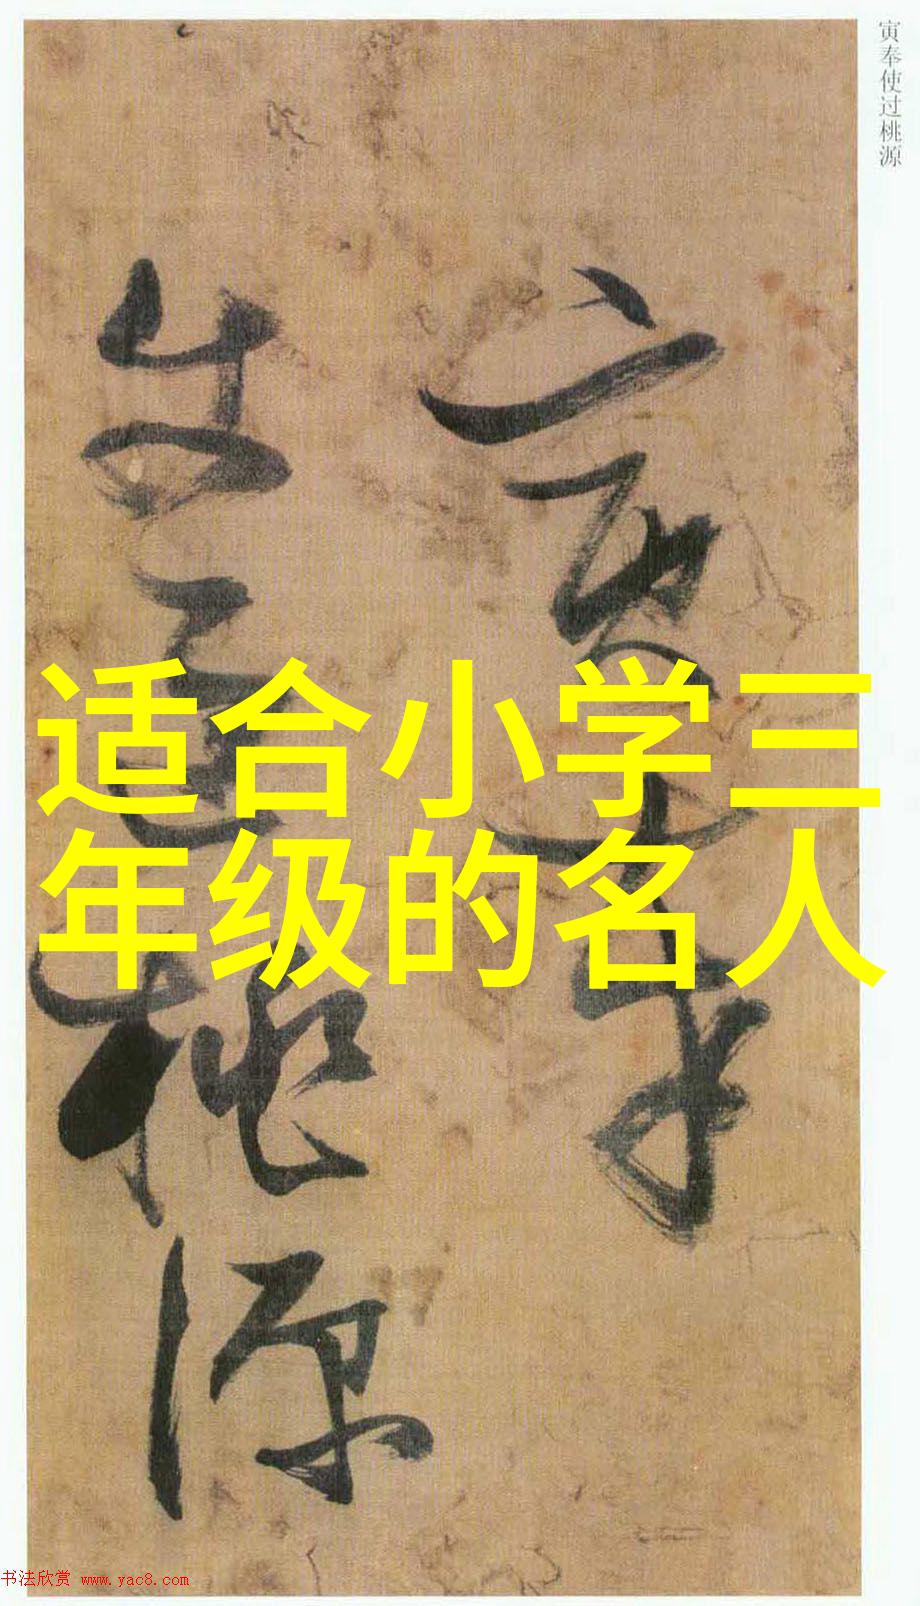 寅奉使过桃源
寅奉
使过桃源
适合小学三
年级的名人
书法欣赏 www.yac8.com